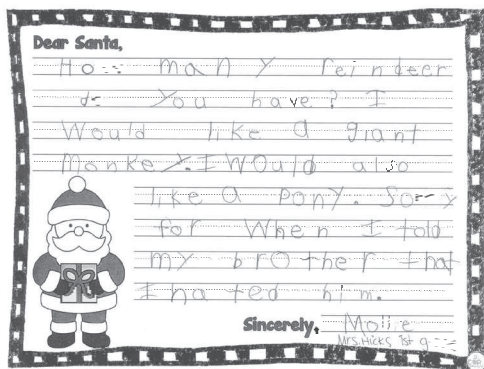 Dear Santa,
How many reindeer
do you have? I
Would like a giant
Monkey. I WOUld also
like a pony. Sorry
for When I told
my brother that
I hated him.
Sincerely, Mollie
Mrs. Hicks 1st g